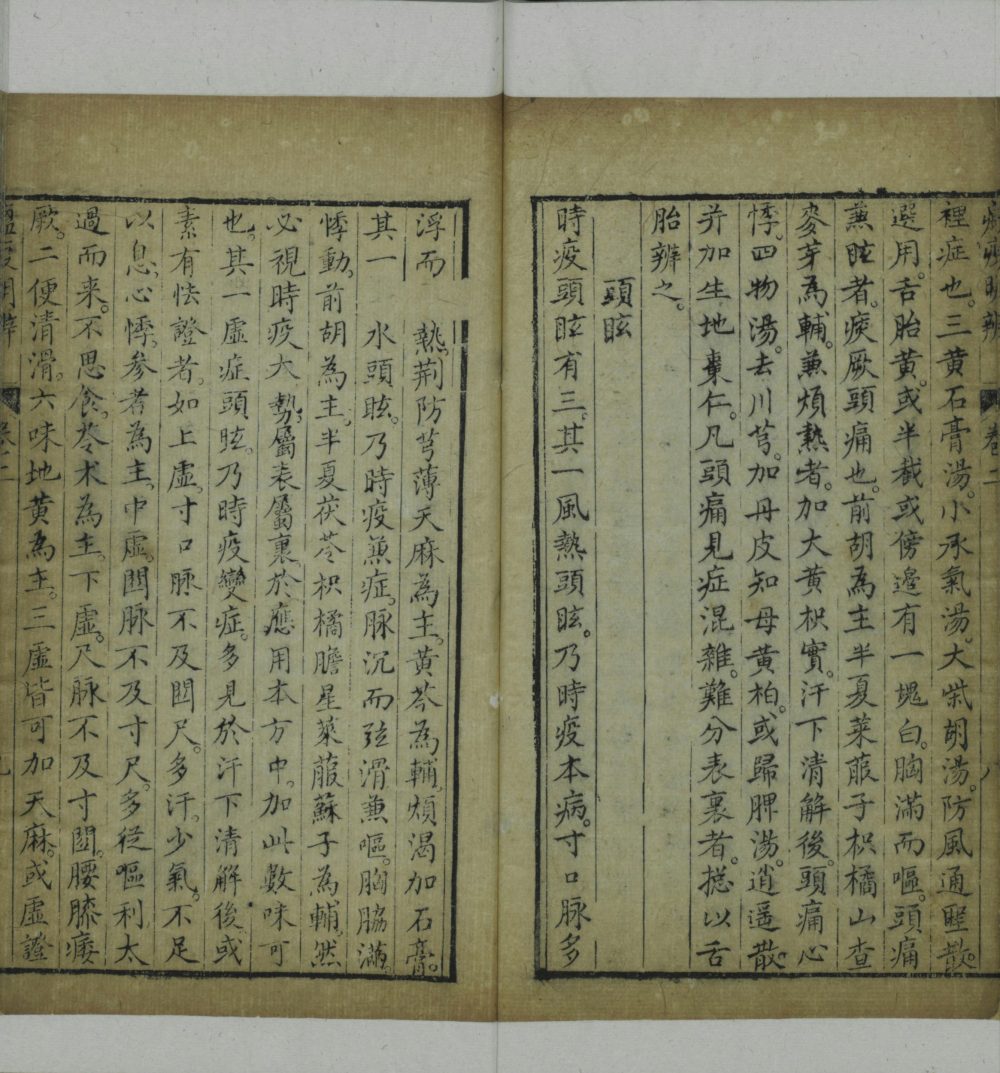 裡症也。三黃石膏湯。小承氣湯。大柴胡湯。防風通聖散。
選用。舌胎黃。或半截或傍邊有一塊白。胸滿而嘔。頭痛
兼眩者。痰厥頭痛也。前胡為主半夏萊菔子枳橘山查
麥芽為輔。兼煩熱者。加大黃枳實。汗下清解後。頭痛心
悸。四物湯。去川芎。加丹皮知母黃柏。或歸脾湯。逍遥散。
並加生地棗仁。凡頭痛見症混雜。難分表裏者。揔以舌
胎辨之。
頭眩
時疫頭眩有三。其一風熱頭眩。乃時疫本病。寸口脉多
浮而 熱。荆防芎薄天麻為主。黃芩為輔。煩渴加石膏。
其一 水頭眩。乃時疫兼症。脉沉而弦滑兼嘔。胸脇滿。
悸動。前胡為主。半夏茯苓枳橘膽星萊菔蘇子為輔。然
必視時疫大勢。屬表屬裏。於應用本方中。加此數味可
也。其一虛症頭眩。乃時疫變症。多見於汗下清解後或
素有怯證者。如上虛。寸口脉不及関尺。多汗。少氣。不足
以息。心悸。參耆為主。中虛。関脉不及寸尺。多從嘔利太
過而来。不思食。苓术為主。下虛。尺脉不及寸関。腰膝痿
厥。二便清滑。六味地黃為主。三虛皆可加天麻。或虛證